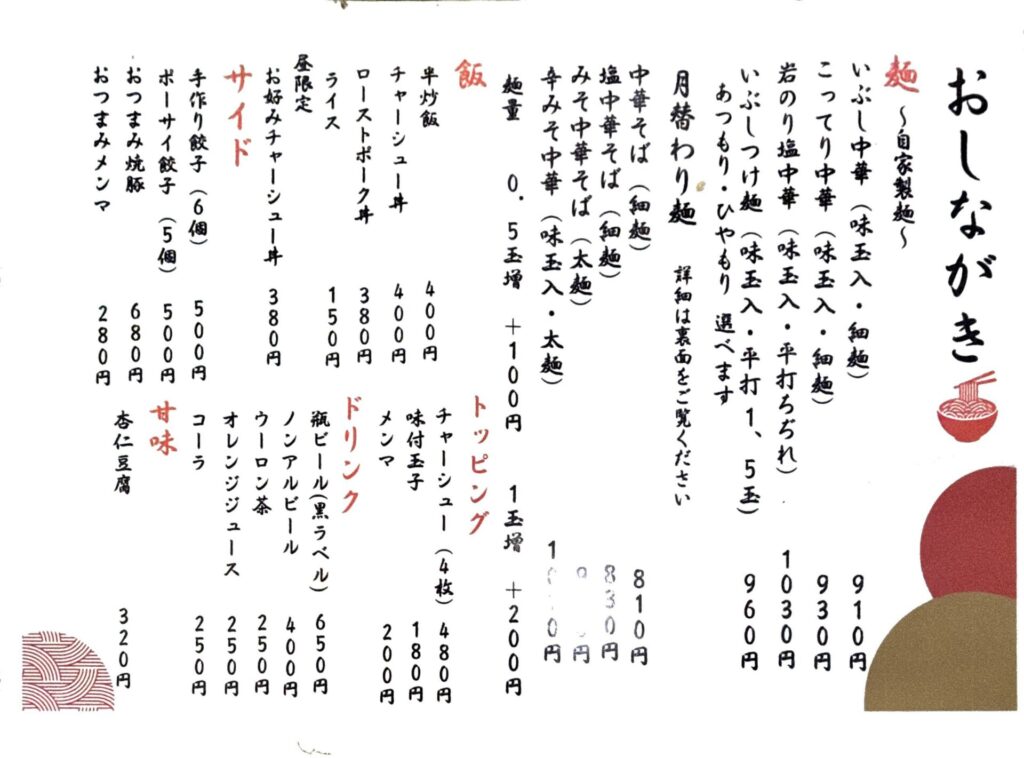 おしながき
麺 ～自家製麺～
いぶし中華（味玉入・細麺） 910円
こってり中華（味玉入・細麺） 930円
岩のり塩中華（味玉入・平打ちぢれ） 1030円
いぶしつけ麺（味玉入・平打1、5玉） 960円
あつもり・ひやもり 選べます
月替わり麺 詳細は裏面をご覧ください
中華そば（細麺） 810円
塩中華そば（細麺） 830円
みそ中華そば（太麺） 円
辛みそ中華（味玉入・太麺） 円
麺量 0.5玉増 +100円 1玉増 +200円
飯
半炒飯 400円
チャーシュー丼 400円
ローストポーク丼 380円
ライス 150円
昼限定
お好みチャーシュー丼 380円
サイド
手作り餃子（6個） 500円
ポーサイ餃子（5個） 500円
おつまみ焼豚 680円
おつまみメンマ 280円
トッピング
チャーシュー（4枚） 480円
味付玉子 180円
メンマ 200円
ドリンク
瓶ビール(黒ラベル) 650円
ノンアルビール 400円
ウーロン茶 250円
オレンジジュース 250円
コーラ 250円
甘味
杏仁豆腐 320円